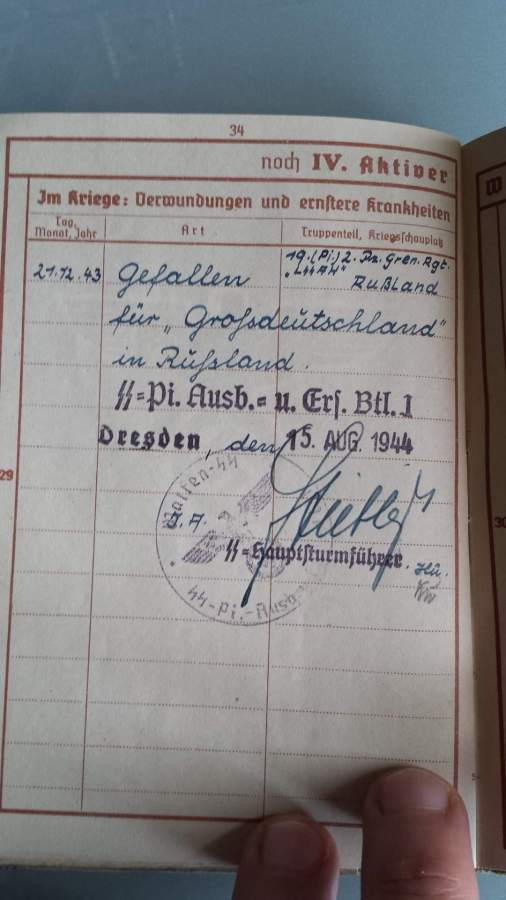 34
noch IV. Aktiver
Im Kriege: Verwundungen und ernstere Krankheiten
Tag, Monat, Jahr
Art
Truppenteil, Kriegsschauplatz
21.12.43
Gefallen
19.(Pi.) 2. Pz. Gren. Rgt.
„LSSAH" Rußland
für „Grossdeutschland"
in Russland.
SS-Pi. Ausb.- u. Ers. Btl. 1
Dresden, den 15. AUG. 1944
Waffen-SS
J.A.
SS-Hauptsturmführer.
SS-Pi.-Ausb
29
30
W